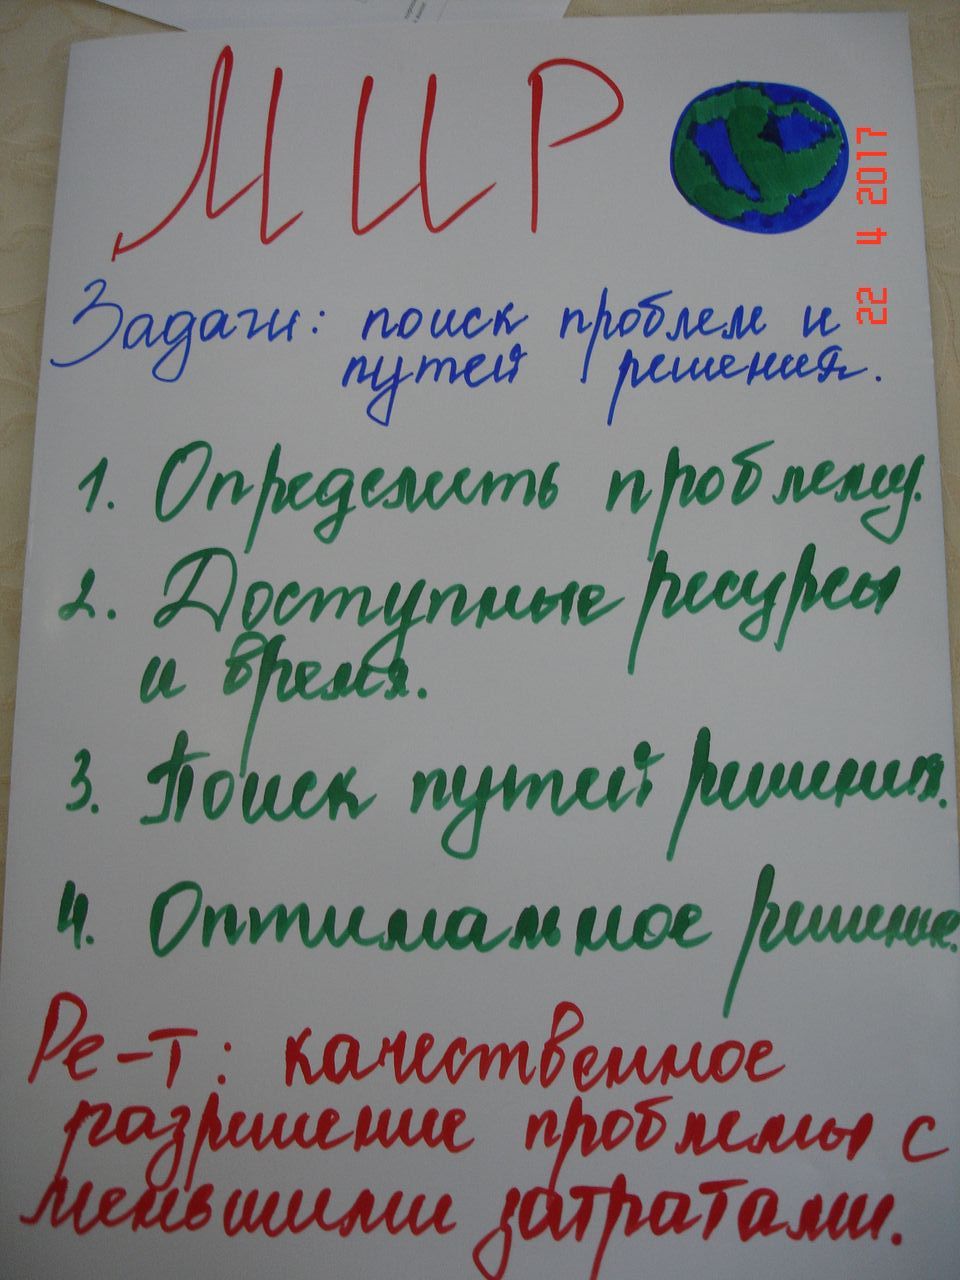 МИР
22 4 2017
Задачи: поиск проблем и
путей решения.
1. Определить проблему.
2. Доступные ресурсы
и время.
3. Поиск путей решения.
4. Оптимальное решение.
Ре-т: качественное
разрешение проблемы с
меньшими затратами.